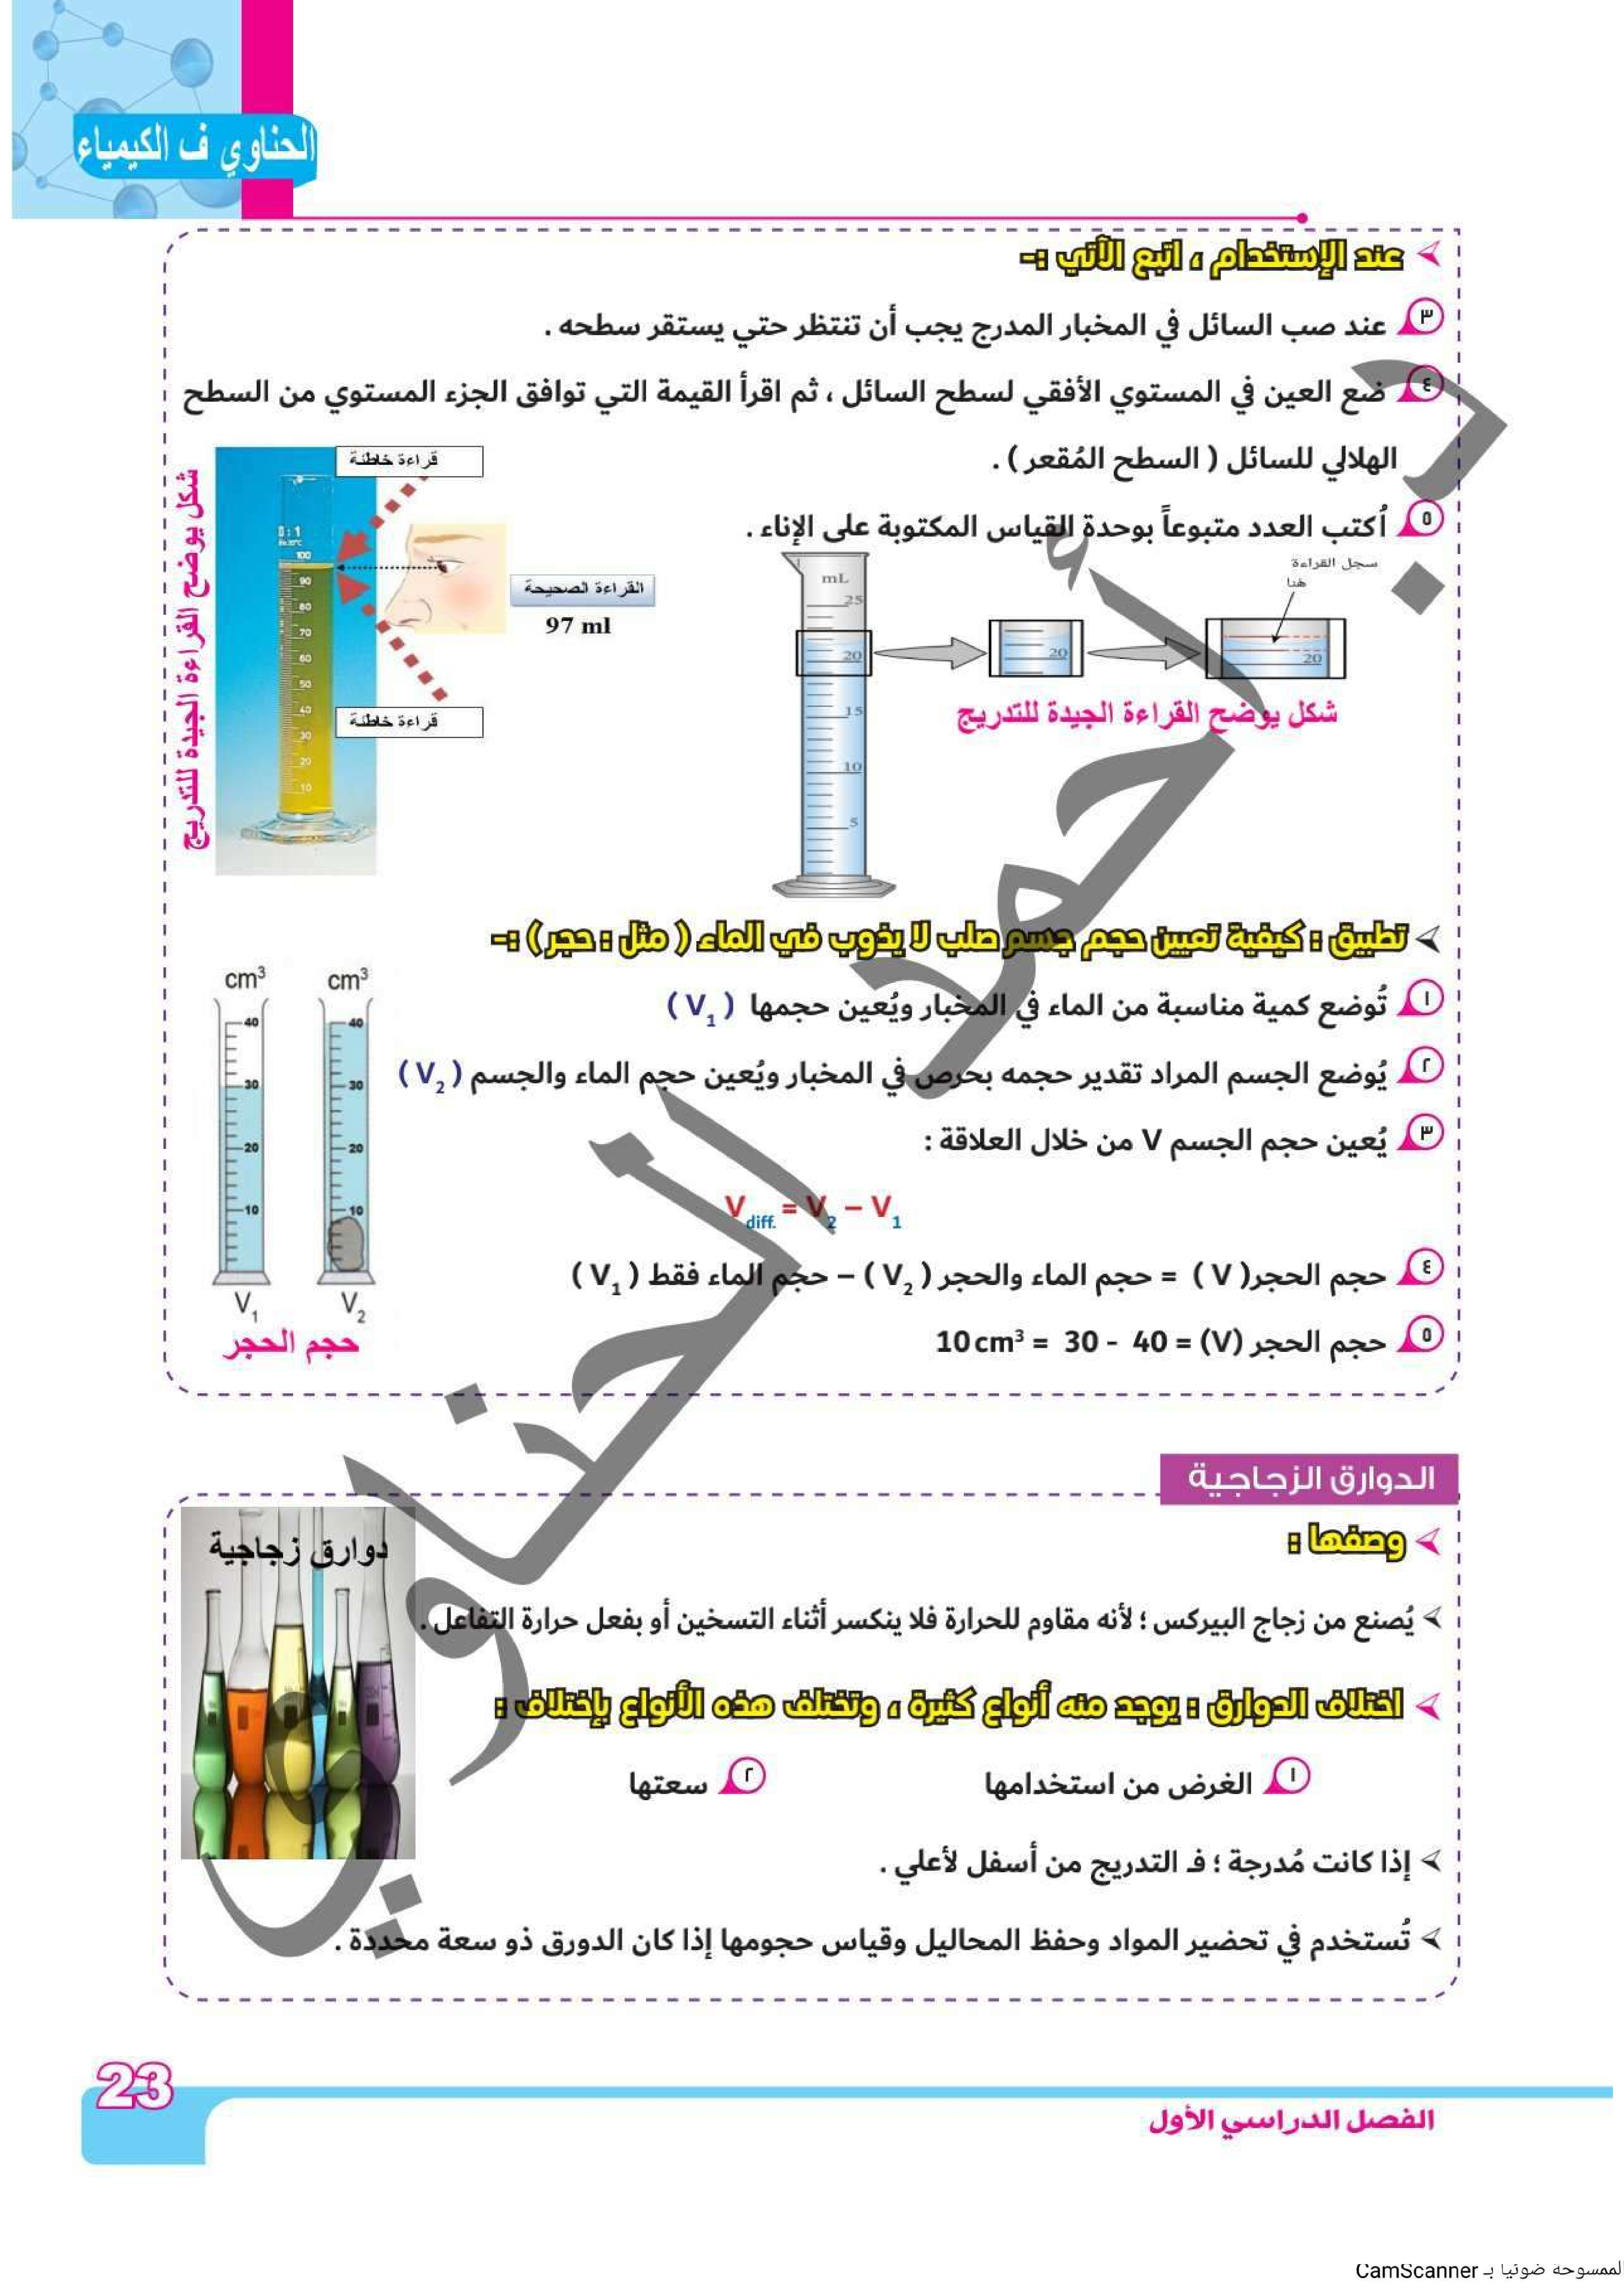 الحناوي ف الكيمياء
عند الإستخدام ، اتبع الآتي :-
٣ عند صب السائل في المخبار المدرج يجب أن تنتظر حتي يستقر سطحه .
٤ ضع العين في المستوي الأفقي لسطح السائل ، ثم اقرأ القيمة التي توافق الجزء المستوي من السطح
الهلالي للسائل ( السطح المُقعر ) .
٥ أكتب العدد متبوعاً بوحدة القياس المكتوبة على الإناء .
شكل يوضح القراءة الجيدة للتدريج
قراءة خاطئة
القراءة الصحيحة
97 ml
قراءة خاطئة
100
90
80
70
60
50
40
30
20
10
mL
25
20
15
10
5
20
سجل القراءة
هنا
20
شكل يوضح القراءة الجيدة للتدريج
تطبيق : كيفية تعيين حجم جسم صلب لا يذوب في الماء ( مثل : حجر ) :-
١ تُوضع كمية مناسبة من الماء في المخبار ويُعين حجمها ( V1 )
٢ يُوضع الجسم المراد تقدير حجمه بحرص في المخبار ويُعين حجم الماء والجسم ( V2 )
٣ يُعين حجم الجسم V من خلال العلاقة :
Vdiff. = V2 – V1
٤ حجم الحجر( V ) = حجم الماء والحجر ( V2 ) – حجم الماء فقط ( V1 )
٥ حجم الحجر (V) = 40 - 30 = 10 cm³
cm³ cm³
40 40
30 30
20 20
10 10
V1 V2
حجم الحجر
الدوارق الزجاجية
وصفها :
دوارق زجاجية
يُصنع من زجاج البيركس ؛ لأنه مقاوم للحرارة فلا ينكسر أثناء التسخين أو بفعل حرارة التفاعل .
اختلاف الدوارق : يوجد منه أنواع كثيرة ، وتختلف هذه الأنواع بإختلاف :
١ الغرض من استخدامها ٢ سعتها
إذا كانت مُدرجة ؛ فـ التدريج من أسفل لأعلي .
تُستخدم في تحضير المواد وحفظ المحاليل وقياس حجومها إذا كان الدورق ذو سعة محددة .
د. أحمد الحناوي
23
الفصل الدراسي الأول
لممسوحة ضوئيا بـ CamScanner